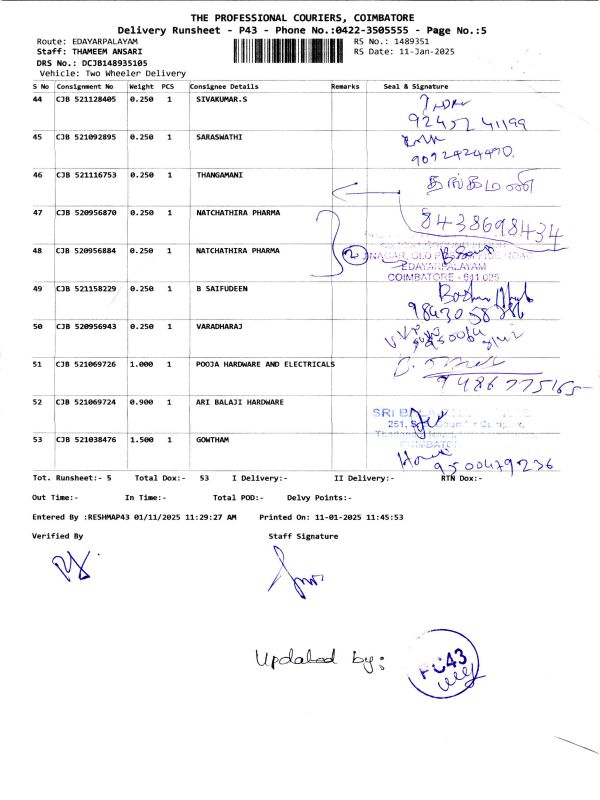 THE PROFESSIONAL COURIERS, COIMBATORE
Delivery Runsheet - P43 - Phone No.:0422-3505555 - Page No.:5
Route: EDAYARPALAYAM RS No.: 1489351
Staff: THAMEEM ANSARI RS Date: 11-Jan-2025
DRS No.: DCJB148935105
Vehicle: Two Wheeler Delivery
S No Consignment No Weight PCS Consignee Details Remarks Seal & Signature
44 CJB 521128405 0.250 1 SIVAKUMAR.S
92457 41199
45 CJB 521092895 0.250 1 SARASWATHI
9092424490.
46 CJB 521116753 0.250 1 THANGAMANI தங்கமணி
47 CJB 520956870 0.250 1 NATCHATHIRA PHARMA 8438698434
48 CJB 520956884 0.250 1 NATCHATHIRA PHARMA 2
EDAYARPALAYAM
COIMBATORE - 641 025
49 CJB 521158229 0.250 1 B SAIFUDEEN
50 CJB 520956943 0.250 1 VARADHARAJ
51 CJB 521069726 1.000 1 POOJA HARDWARE AND ELECTRICALS
9486775165
52 CJB 521069724 0.900 1 ARI BALAJI HARDWARE
SRI
251,
53 CJB 521038476 1.500 1 GOWTHAM
9500479236
Tot. Runsheet:- 5 Total Dox:- 53 I Delivery:- II Delivery:- RTN Dox:-
Out Time:- In Time:- Total POD:- Delvy Points:-
Entered By :RESHMAP43 01/11/2025 11:29:27 AM Printed On: 11-01-2025 11:45:53
Verified By Staff Signature
Updated by:
PC43